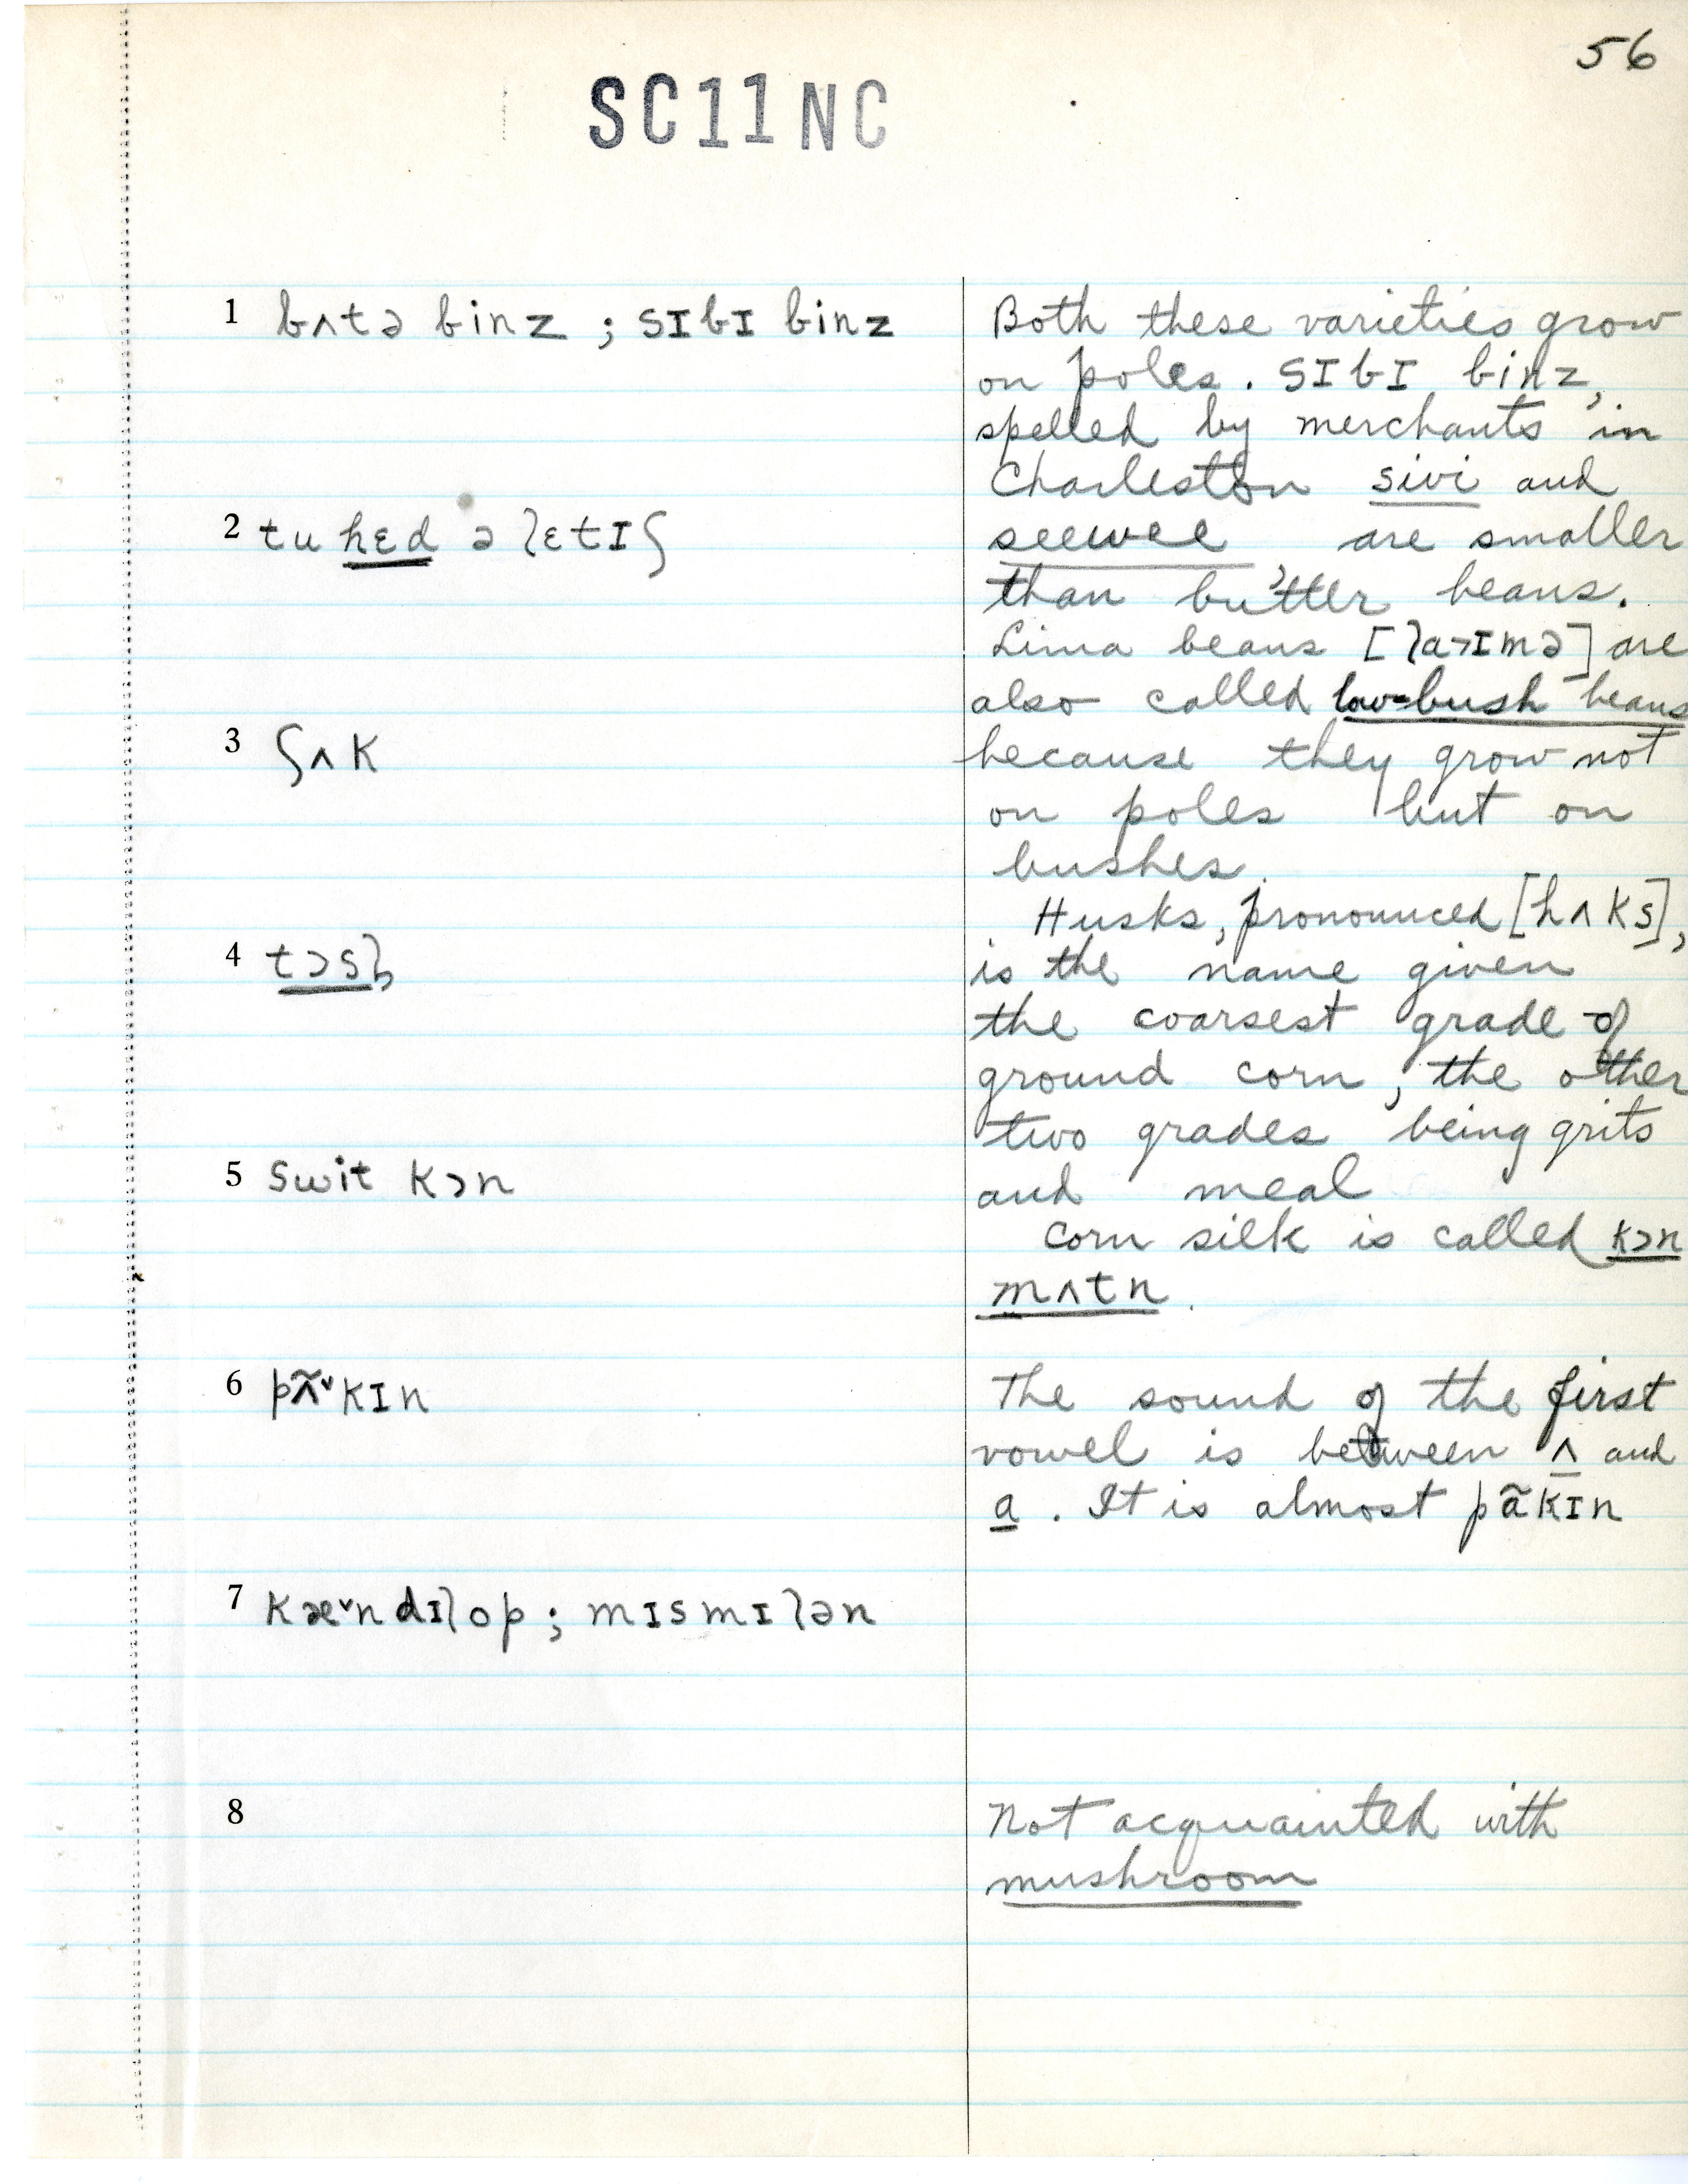 56
SC11NC
1 bʌtə binz ; sɪbɪ binz
2 tu hɛd ə lɛtɪʃ
3 ʃʌk
4 tɔsl̩
5 swit kɔn
6 pʌ̃˅kɪn
7 kæ˅ndɪlop ; mɪsmɪlən
8
Both these varieties grow
on poles. sɪbɪ binz,
spelled by merchants in
Charleston sivi and
seewee, are smaller
than butter beans.
Lima beans [la˃ɪmə] are
also called low-bush beans
because they grow not
on poles but on
bushes.
Husks, pronounced [hʌks],
is the name given
the coarsest grade of
ground corn, the other
two grades being grits
and meal
Corn silk is called kɔn
mʌtn.
The sound of the first
vowel is between ʌ and
a. It is almost pãkɪn
Not acquainted with
mushroom